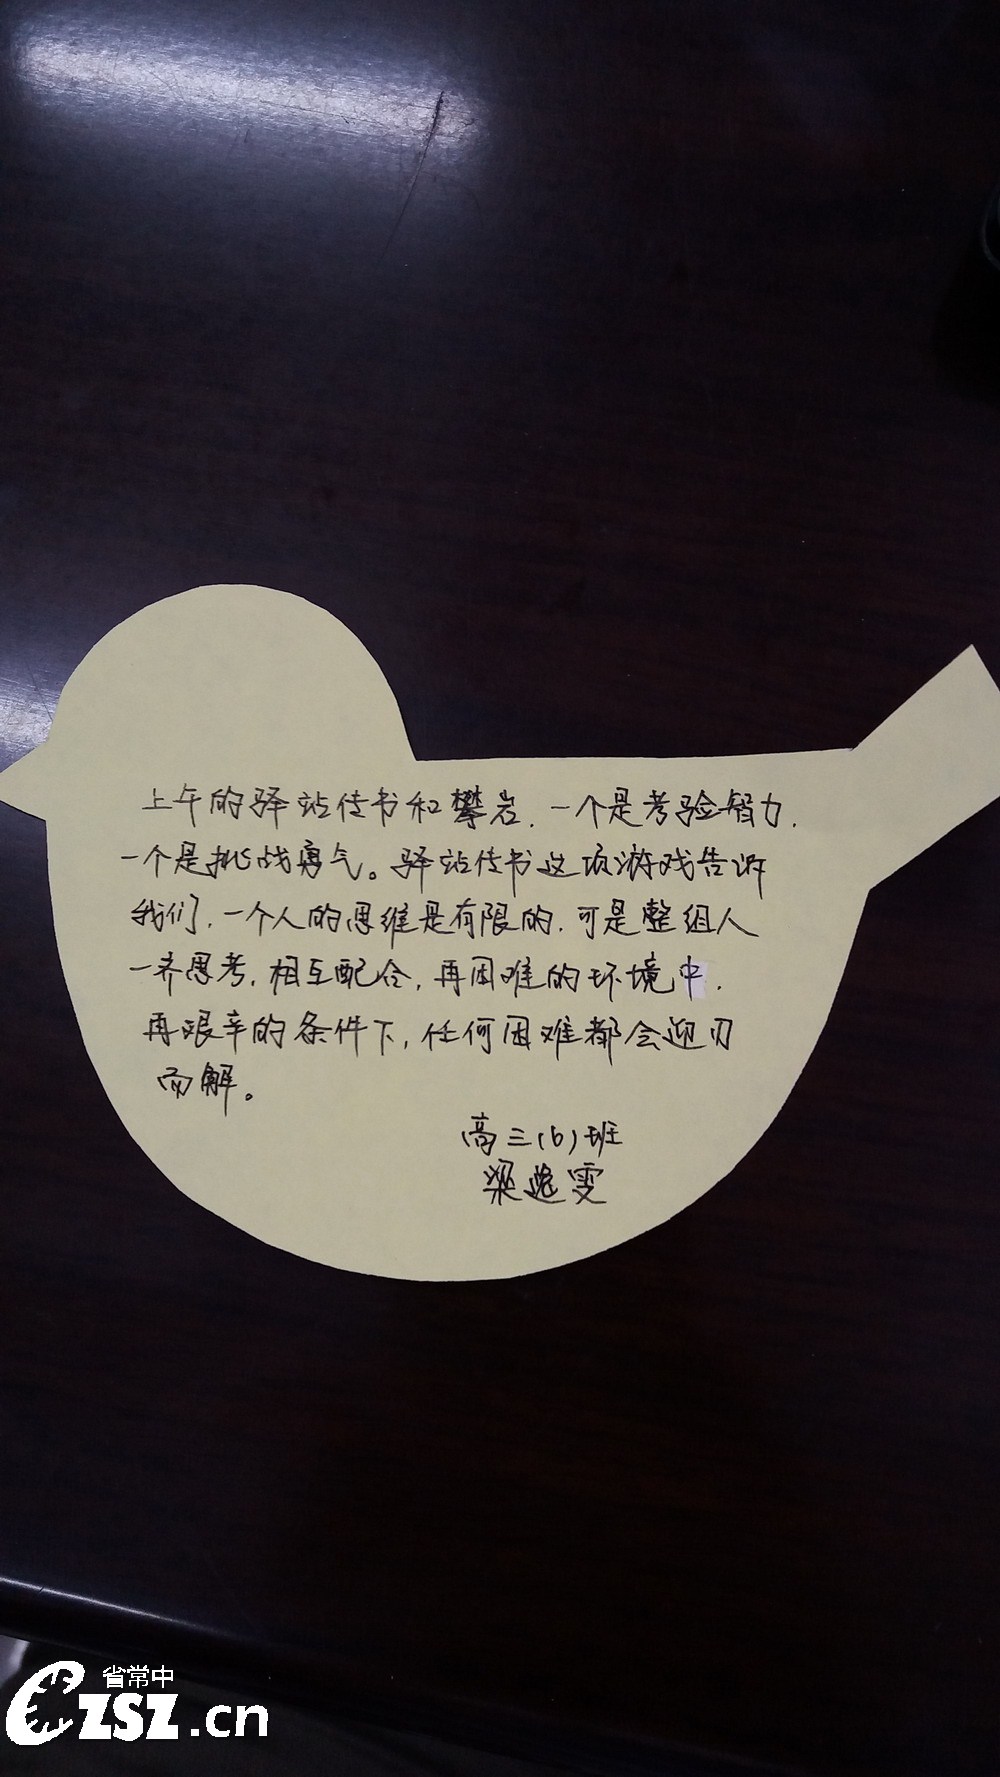 上午的驿站传书和攀岩，一个是考验智力，
一个是挑战勇气。驿站传书这项游戏告诉
我们，一个人的思维是有限的，可是整组人
一齐思考，相互配合，再困难的环境中，
再艰辛的条件下，任何困难都会迎刃
而解。
高三(6)班
梁逸雯
省常中
CZSZ.cn